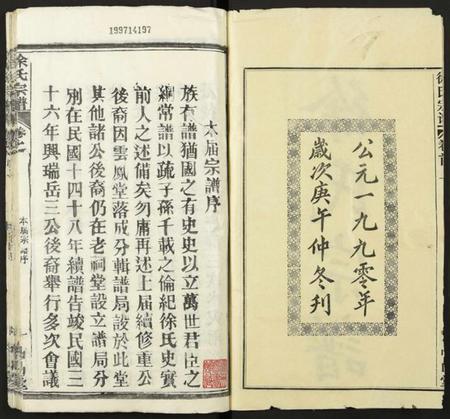 199714197
徐氏宗譜
公元一九九零年
歲次庚午仲冬刋
徐氏宗譜 卷之
本届宗譜序
本届宗譜序
族有譜猶國之有史史以立萬世君臣之
綱常譜以疏子孫千載之倫紀徐氏史實
前人之述備矣勿庸再述上届續修重公
後裔因雲鳳堂落成分輯譜局設於此堂
其他諸公後裔仍在老祠堂設立譜局分
別在民國十四十八年續譜告竣民國三
十六年興瑞岳三公後裔舉行多次會議